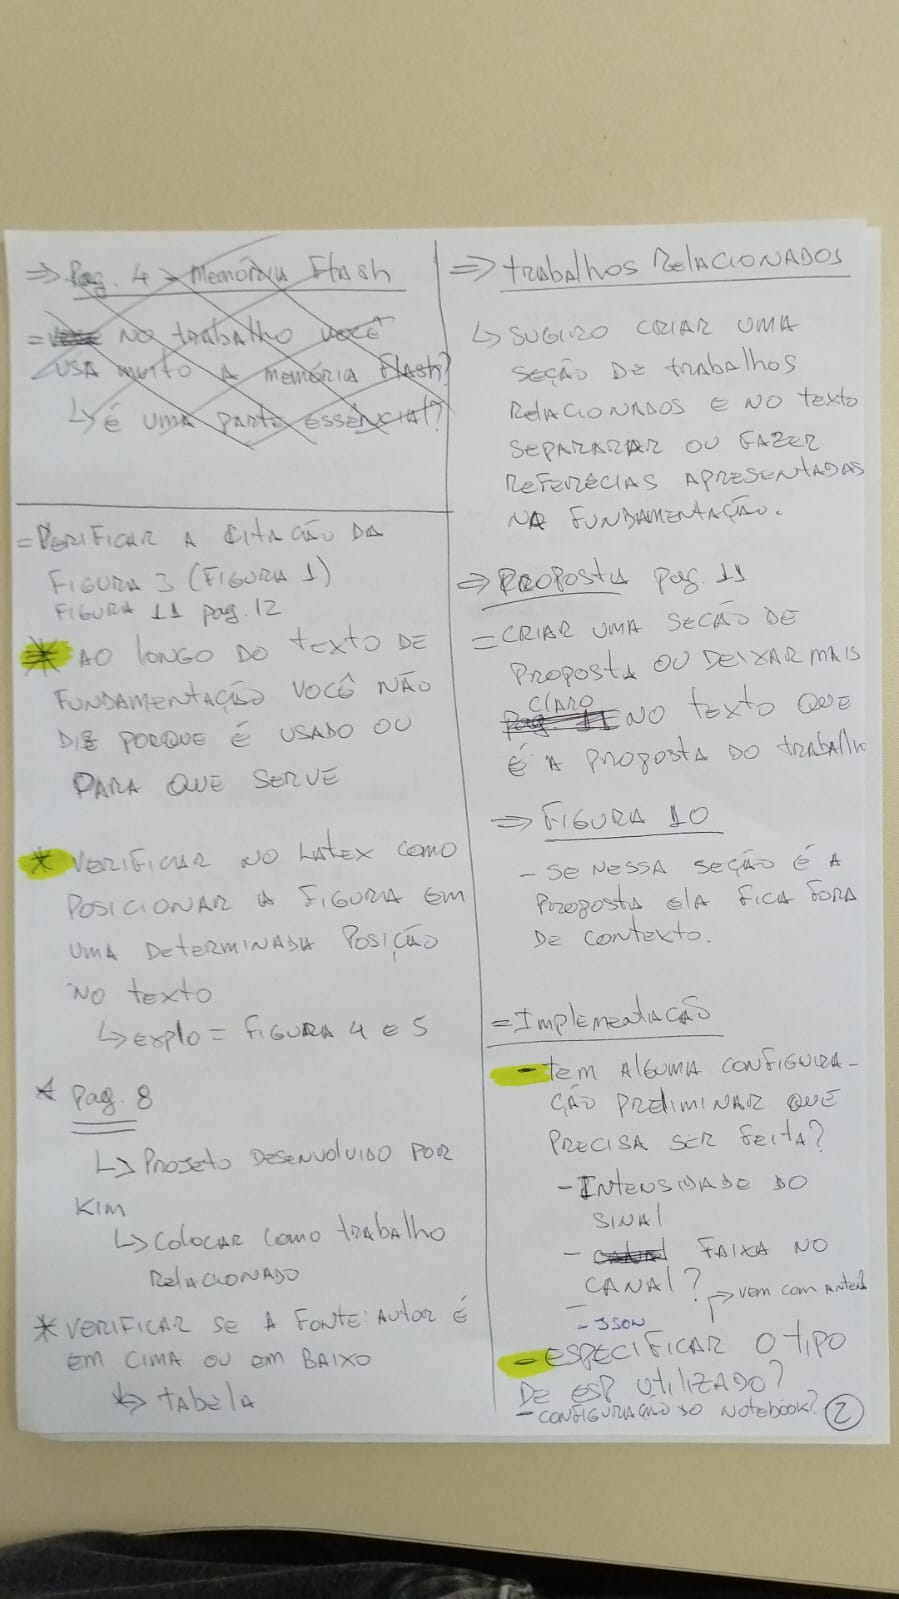 ⇒ Pag. 4 > Memória Flash
= No trabalho você
usa muito a memória Flash?
↳ é uma parte essêncial?
= Verificar a citação da
Figura 3 (Figura 1)
Figura 11 pag. 12
* Ao longo do texto de
fundamentação você não
diz porque é usado ou
para que serve
* Verificar no latex como
posicionar a figura em
uma determinada posição
no texto
↳ explo = Figura 4 e 5
* Pag. 8
↳ Projeto desenvolvido por
Kim
↳ Colocar como trabalho
relacionado
* Verificar se a fonte: autor é
em cima ou em baixo
↳ tabela
⇒ trabalhos Relacionados
↳ Sugiro criar uma
seção de trabalhos
relacionados e no texto
separarar ou fazer
referêcias apresentadas
na fundamentação.
⇒ Proposta pag. 11
= Criar uma seção de
proposta ou deixar mais
claro
pag. 11 no texto que
é a proposta do trabalho
⇒ Figura 10
- Se nessa seção é a
proposta ela fica fora
de contexto.
= Implementação
- tem alguma configura-
ção preliminar que
precisa ser feita?
- Intensidade do
sinal
- canal faixa no
canal? → vem com antena
- JSON
- Especificar o tipo
de esp utilizado?
- Configuração do notebook?
2